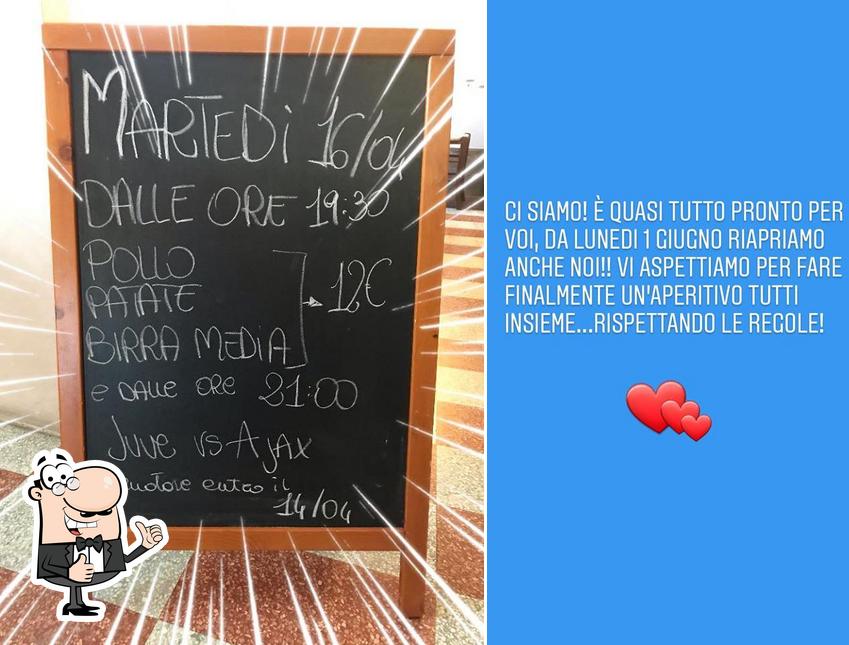 MARTEDì 16/04
DALLE ORE 19:30
POLLO
PATATE
BIRRA MEDIA
12€
e DALLE ORE 21:00
JUVE VS AJAX
entro il
14/04
CI SIAMO! È QUASI TUTTO PRONTO PER
VOI, DA LUNEDI 1 GIUGNO RIAPRIAMO
ANCHE NOI!! VI ASPETTIAMO PER FARE
FINALMENTE UN'APERITIVO TUTTI
INSIEME...RISPETTANDO LE REGOLE!